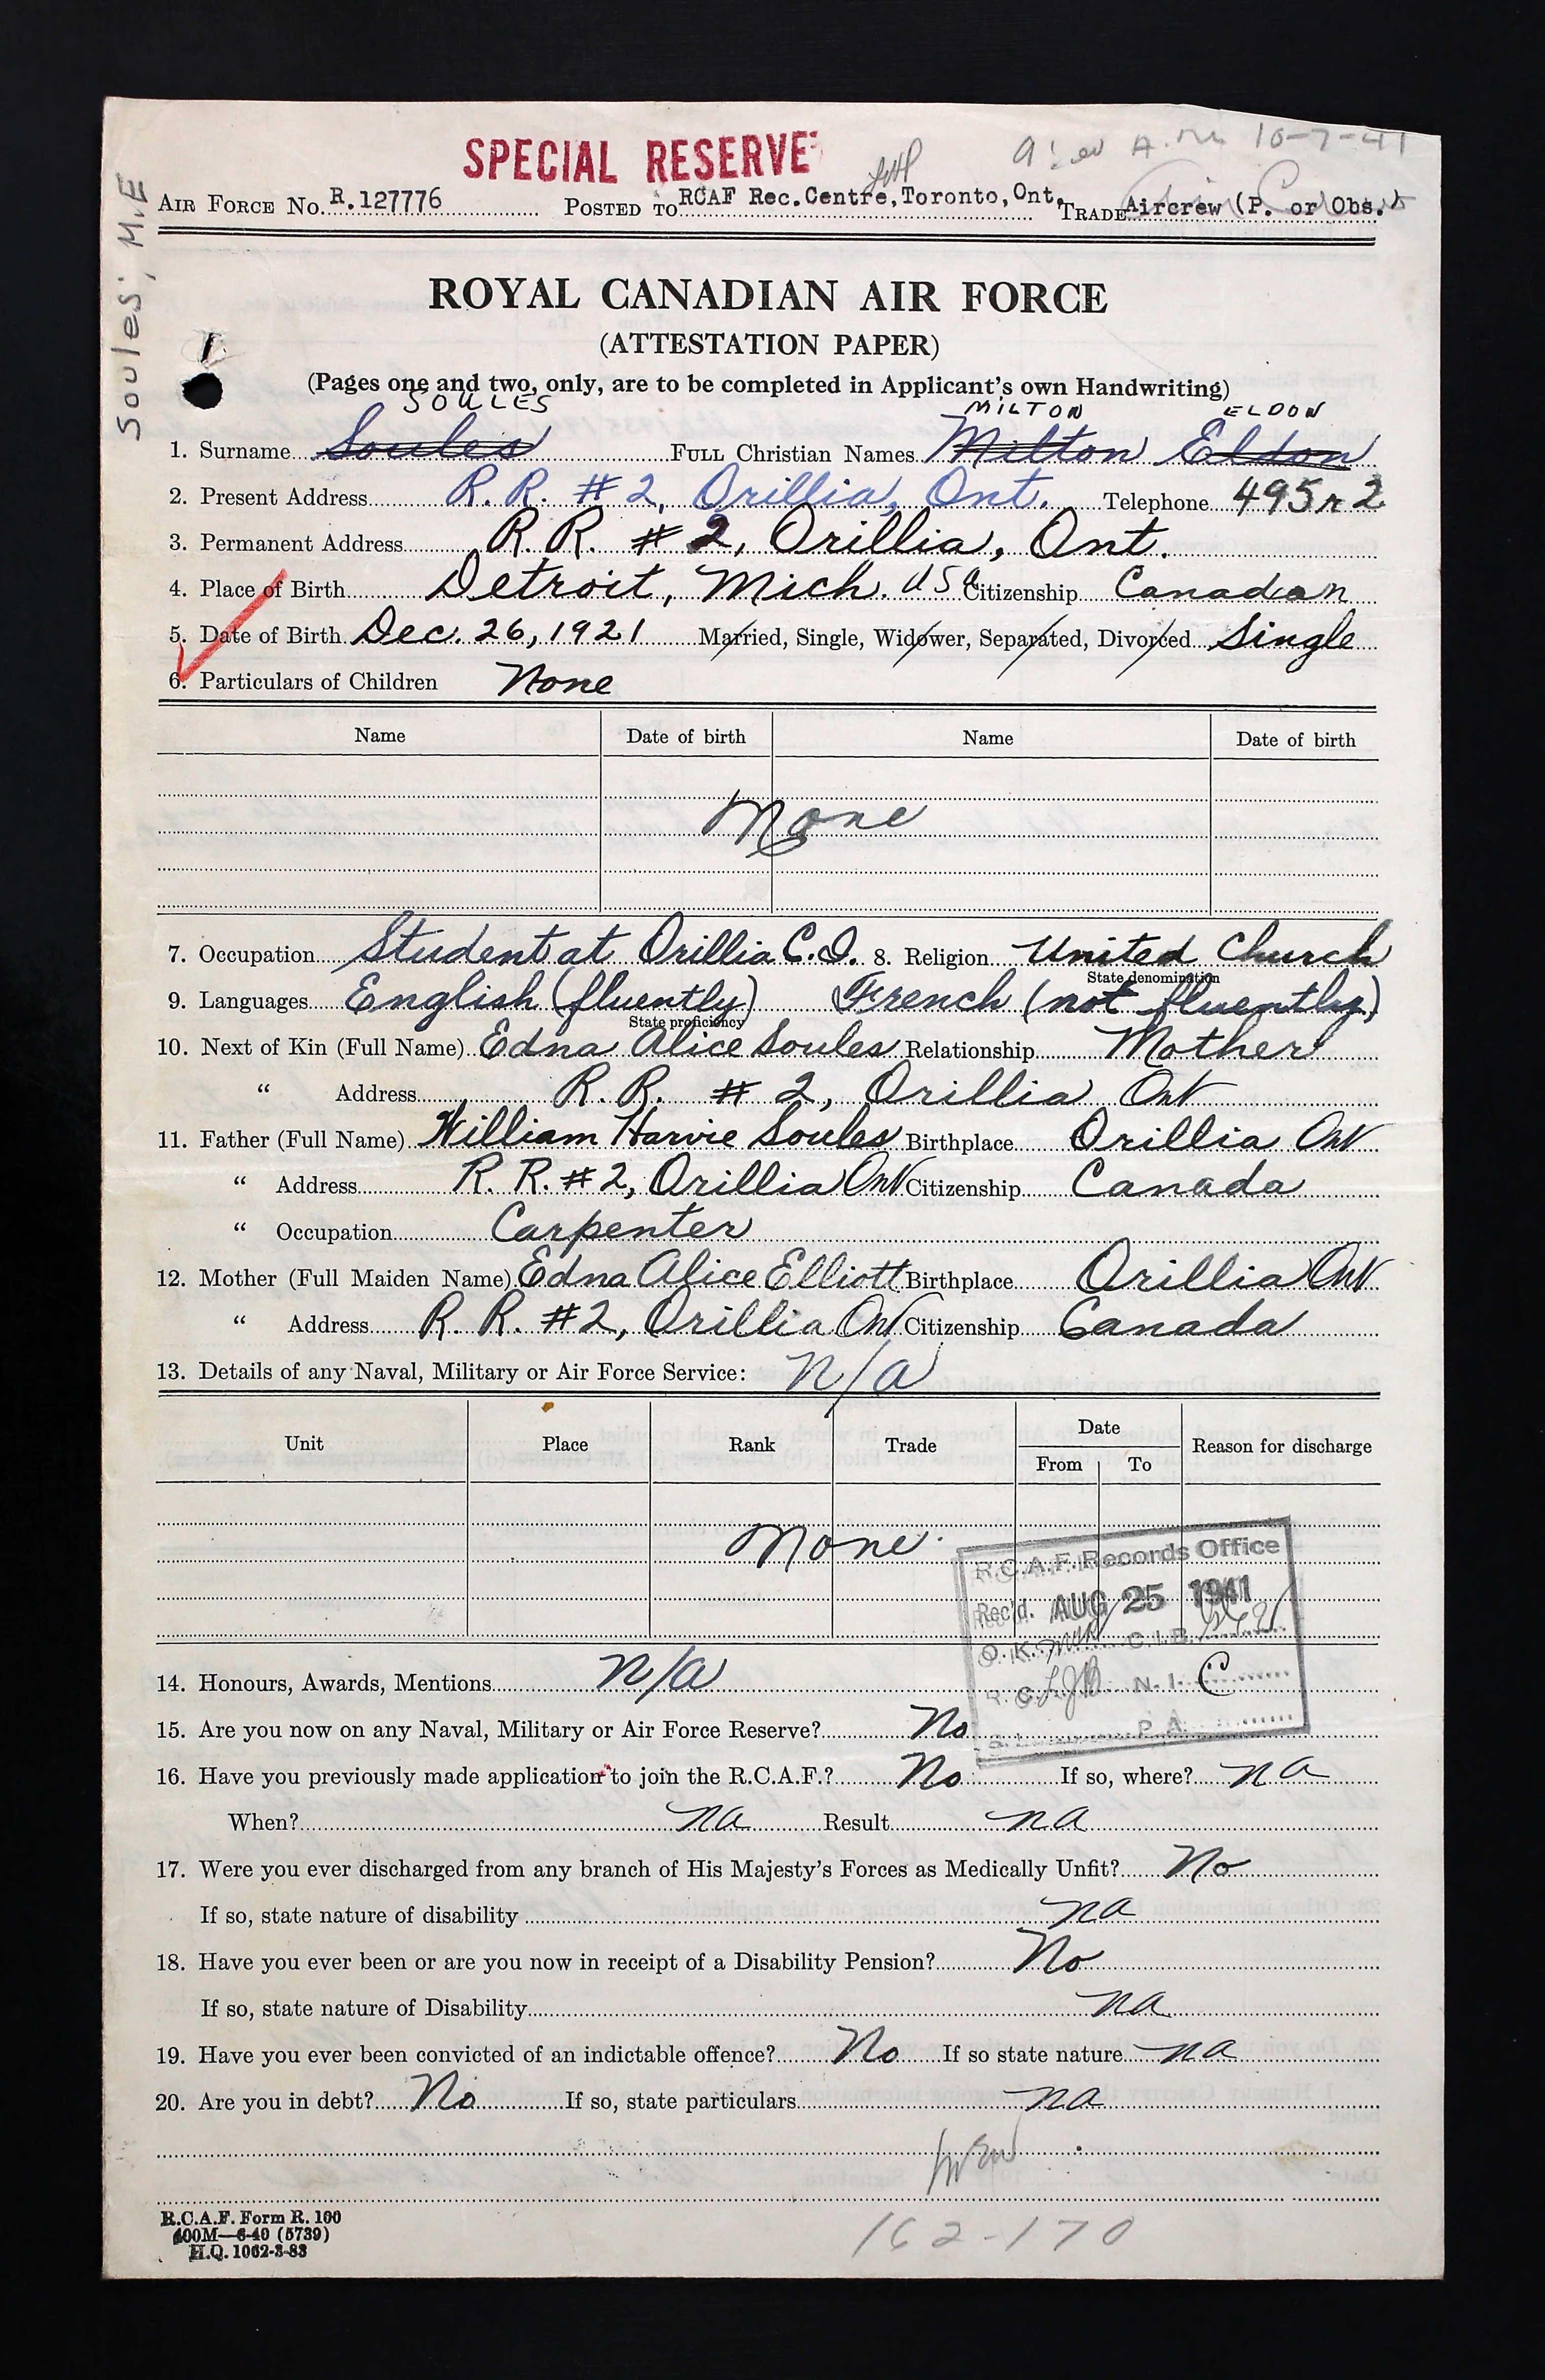 SPECIAL RESERVE
A. M. 10-7-41
Soules, M.E
AIR FORCE NO. R.127776 POSTED TO RCAF Rec.Centre,Toronto,Ont. TRADE Aircrew (P. or Obs.)
ROYAL CANADIAN AIR FORCE
(ATTESTATION PAPER)
(Pages one and two, only, are to be completed in Applicant's own Handwriting)
SOULES MILTON ELDON
1. Surname Soules FULL Christian Names Milton Eldon
2. Present Address R.R. #2, Orillia, Ont. Telephone 495r2
3. Permanent Address R.R. #2, Orillia, Ont.
4. Place of Birth Detroit, Mich. USA Citizenship Canadian
5. Date of Birth Dec. 26, 1921 Married, Single, Widower, Separated, Divorced Single
6. Particulars of Children None
Name Date of birth Name Date of birth
None
7. Occupation Student at Orillia C.I. 8. Religion United Church
State denomination
9. Languages English (fluently) French (not fluently)
State proficiency
10. Next of Kin (Full Name) Edna Alice Soules Relationship Mother
" Address R.R. #2, Orillia Ont
11. Father (Full Name) William Harvie Soules Birthplace Orillia Ont
" Address R.R. #2, Orillia Ont Citizenship Canada
" Occupation Carpenter
12. Mother (Full Maiden Name) Edna Alice Elliott Birthplace Orillia Ont
" Address R.R. #2, Orillia Ont Citizenship Canada
13. Details of any Naval, Military or Air Force Service: N/A
Unit Place Rank Trade Date From To Reason for discharge
None
R.C.A.F. Records Office
Rec'd. AUG 25 1941
O.K. C.I.B.
R.C. N.I. C
P.A.
14. Honours, Awards, Mentions N/A
15. Are you now on any Naval, Military or Air Force Reserve? No
16. Have you previously made application to join the R.C.A.F.? No If so, where? na
When? na Result na
17. Were you ever discharged from any branch of His Majesty's Forces as Medically Unfit? No
If so, state nature of disability na
18. Have you ever been or are you now in receipt of a Disability Pension? No
If so, state nature of Disability na
19. Have you ever been convicted of an indictable offence? No If so state nature na
20. Are you in debt? No If so, state particulars na
162-170
R.C.A.F. Form R. 100
400M—6-40 (5739)
H.Q. 1062-3-83